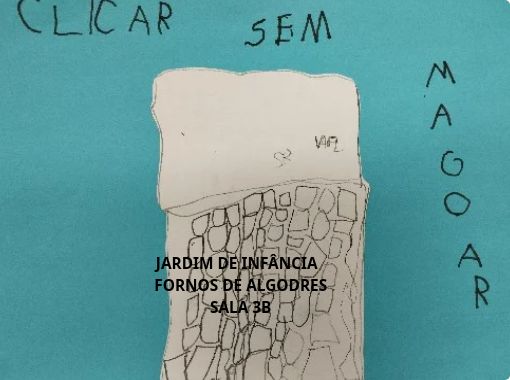 CLICAR SEM
MAGOAR
JARDIM DE INFÂNCIA
FORNOS DE ALGODRES
SALA 3B